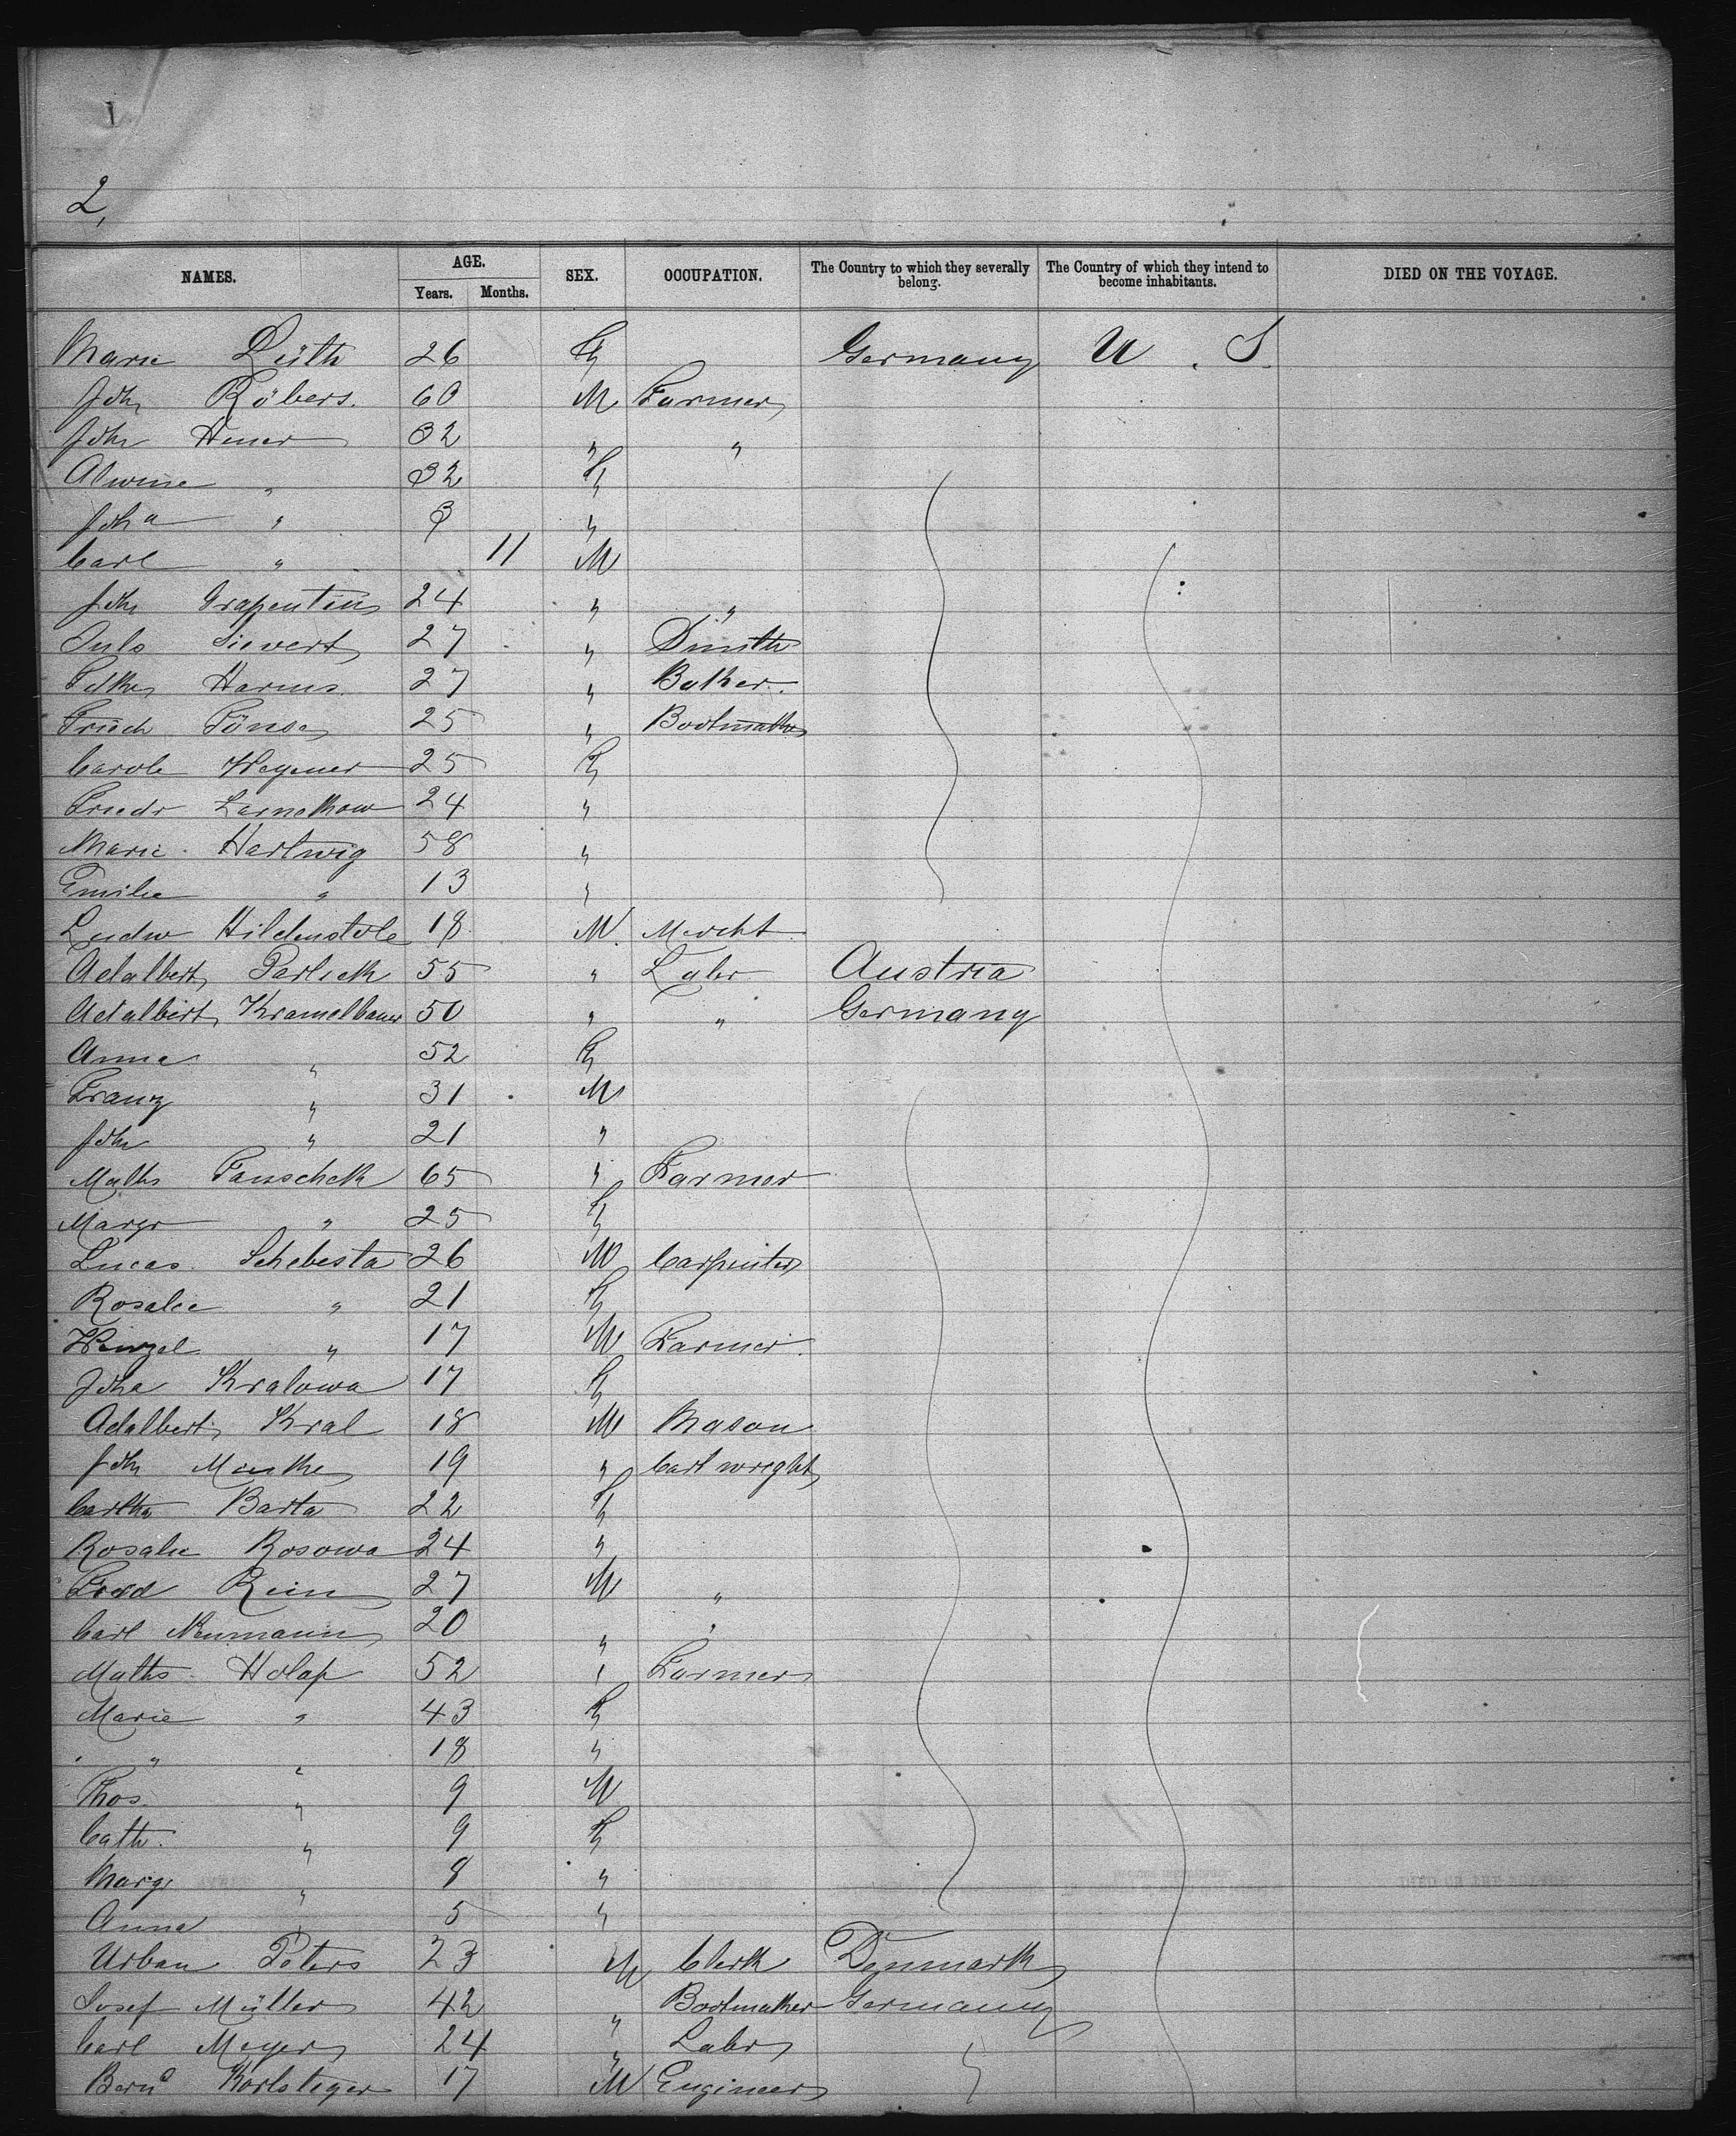 2,
NAMES. AGE. Years. Months. SEX. OCCUPATION. The Country to which they severally belong. The Country of which they intend to become inhabitants. DIED ON THE VOYAGE.
Marie Lüth 26 F Germany U. S.
Joh Röbers. 60 M Farmer
Joh Heuer 32 " "
Alwine " 32 F
Joha " 3 "
Carl " 11 M
Joh Grapentin 24 " "
Juls Sievert 27 " Smith
Harms 27 " Baker.
Friedr Tönse 25 " Bootmaker
Carole Wegener 25 F
Friedr 24 "
Marie Hartwig 58 "
Emilie " 13 "
Ludw 18 M Mercht
Adalbert Parlick 55 " Labr Austria
Adalbert Kramelbauer 50 " " Germany
Anna " 52 F
Franz " 31 M
Joh " 21 "
Maths 65 " Farmer
Margr " 25 F
Lucas Schebesta 26 M Carpenter
Rosalie " 21 F
Wenzel " 17 M Farmer.
Joha Kralowa 17 F
Adalbert Kral 18 M Mason
Joh 19 " Cartwright
Barta 22 F
Rosalie Rosowa 24 "
Ferd 27 M "
Carl Neumann 20 " "
Maths Holap 52 " Farmer
Marie " 43 F
" " 18 "
Thos. " 9 M
Cath. " 9 F
Margr " 8 "
Anna " 5 "
Urban Peters 23 M Clerk Denmark
Josef Müller 42 " Bootmaker Germany
Carl Meyer 24 " Labr "
Bernd 17 M Engineer